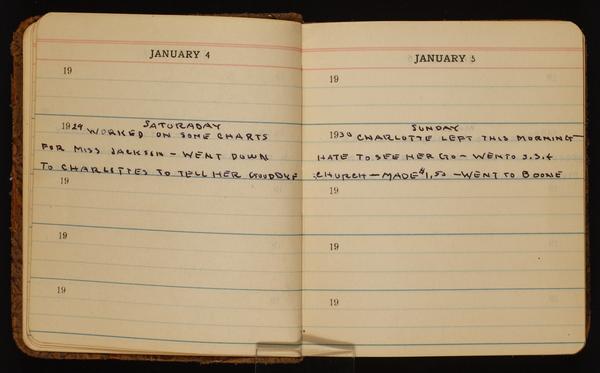 JANUARY 4
19
1929 SATURADAY
WORKED ON SOME CHARTS
FOR MISS JACKSON - WENT DOWN
TO CHARLOTTES TO TELL HER GOODBYE
19
19
19
JANUARY 5
19
1930 SUNDAY
CHARLOTTE LEFT THIS MORNING -
HATE TO SEE HER GO - WENTO S.S. &
CHURCH - MADE $1.50 - WENT TO BOONE
19
19
19